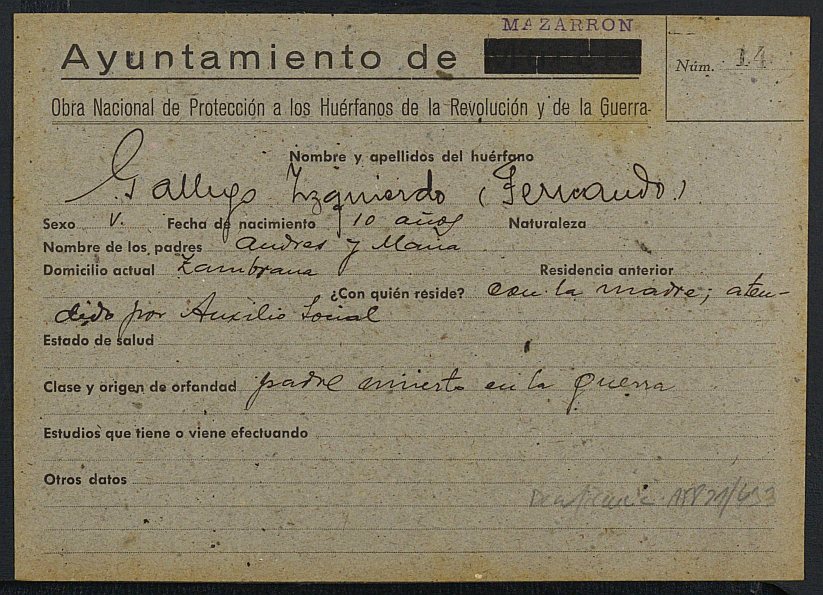 MAZARRON
Ayuntamiento de
Núm. 14
Obra Nacional de Protección a los Huérfanos de la Revolución y de la Guerra
Nombre y apellidos del huérfano
Gallego Izquierdo (Fernando)
Sexo V. Fecha de nacimiento 10 años Naturaleza
Nombre de los padres Andres y Maria
Domicilio actual Zambrana Residencia anterior
¿Con quién reside? con la madre; aten-
dido por Auxilio Social
Estado de salud
Clase y origen de orfandad padre muerto en la guerra
Estudios que tiene o viene efectuando
Otros datos